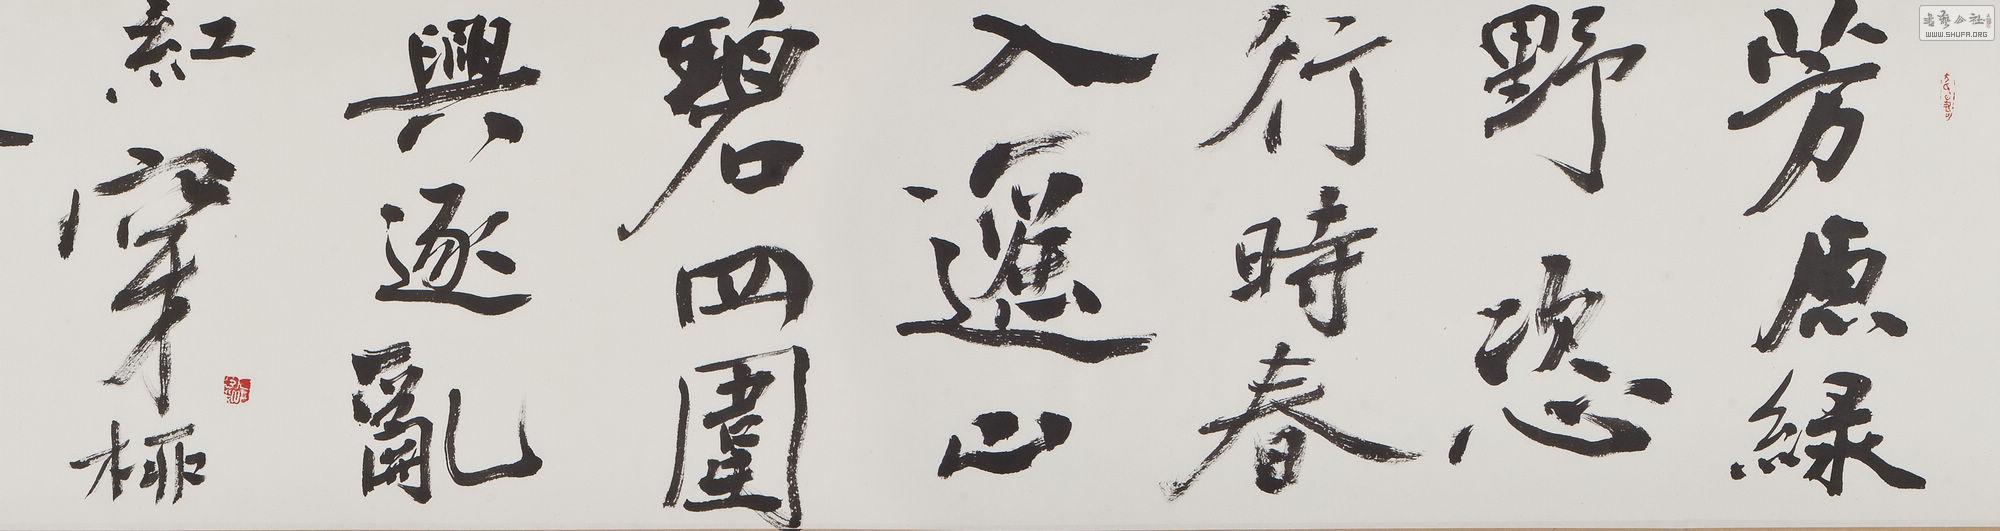 芳原緑
野恣
行時春
入遙山
碧四圍
興逐亂
紅穿柳
書藝公社
WWW.SHUFA.ORG